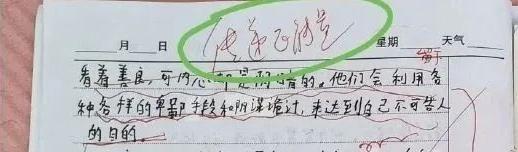 月 日 传递正能量 星期 天气
看着善良,可内心却是阴暗的。他们会利用各
种各样的卑鄙手段和阴谋诡计,来达到自己不可告人
的目的。